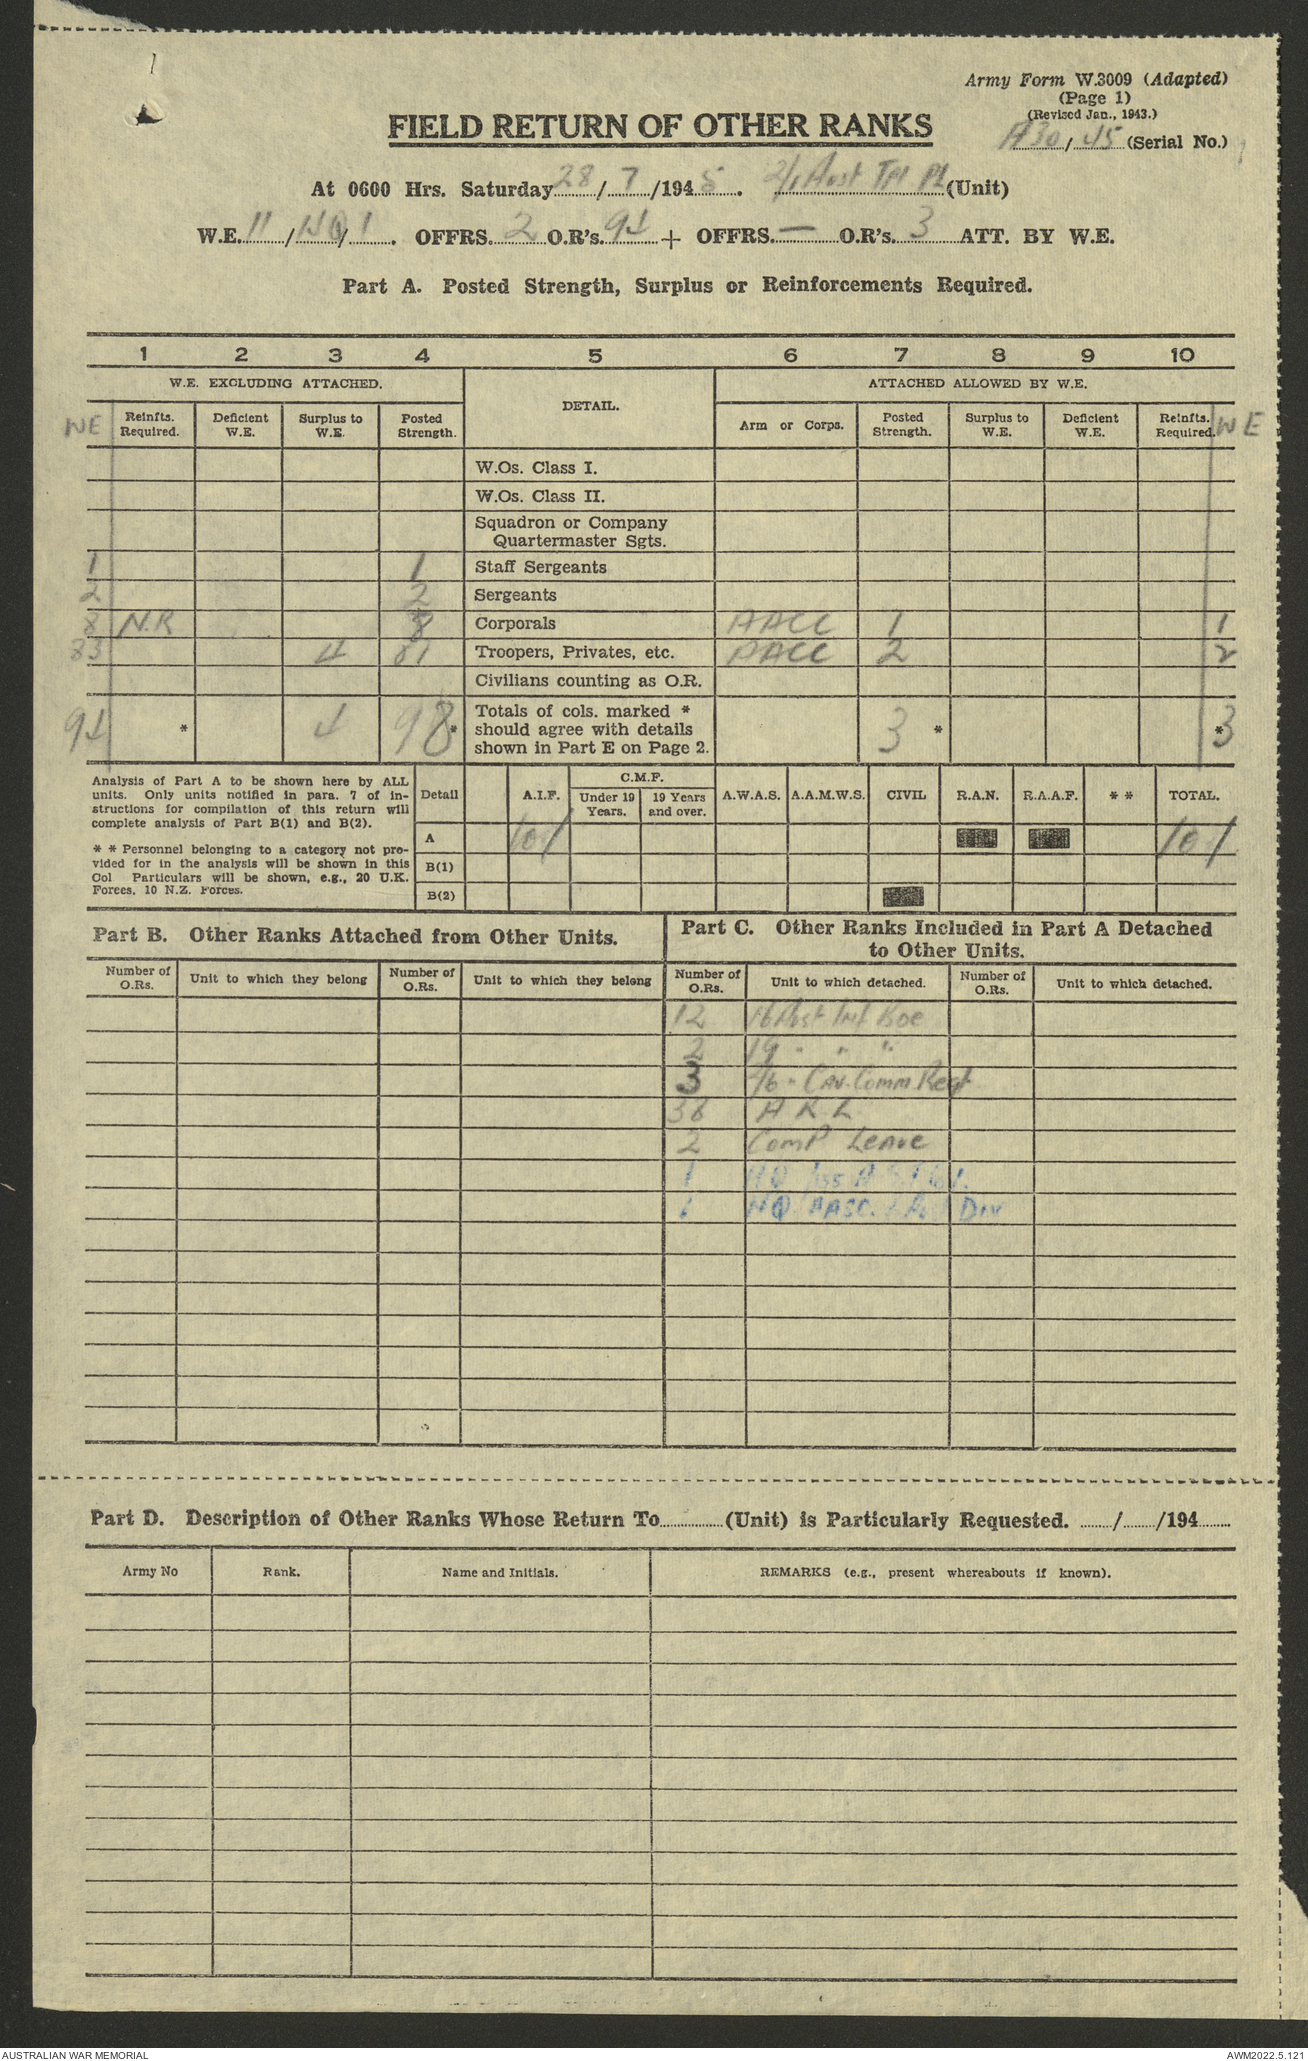 Army Form W.3009 (Adapted)
(Page 1)
(Revised Jan., 1943.)
FIELD RETURN OF OTHER RANKS
A30/45 (Serial No.)
At 0600 Hrs. Saturday 28/7/1945. 2/1 Aust Tpt Pl (Unit)
W.E. 11/HQ/1. OFFRS. 2 O.R's. 94 + OFFRS. — O.R's. 3 ATT. BY W.E.
Part A. Posted Strength, Surplus or Reinforcements Required.
1 2 3 4 5 6 7 8 9 10
W.E. EXCLUDING ATTACHED. DETAIL. ATTACHED ALLOWED BY W.E.
WE Reinfts. Required. Deficient W.E. Surplus to W.E. Posted Strength. Arm or Corps. Posted Strength. Surplus to W.E. Deficient W.E. Reinfts. Required. WE
W.Os. Class I.
W.Os. Class II.
Squadron or Company
Quartermaster Sgts.
1 1 Staff Sergeants
2 2 Sergeants
8 N.R 8 Corporals AACC 1 1
83 4 Troopers, Privates, etc. AACC 2 2
Civilians counting as O.R.
94 * 4 98 * Totals of cols. marked * 3 * * 3
should agree with details
shown in Part E on Page 2.
Analysis of Part A to be shown here by ALL
units. Only units notified in para. 7 of in-
structions for compilation of this return will
complete analysis of Part B(1) and B(2).
* * Personnel belonging to a category not pro-
vided for in the analysis will be shown in this
Col Particulars will be shown, e.g., 20 U.K.
Forces, 10 N.Z. Forces.
Detail A.I.F. C.M.F. Under 19 Years. 19 Years and over. A.W.A.S. A.A.M.W.S. CIVIL R.A.N. R.A.A.F. * * TOTAL.
A 101 101
B(1)
B(2)
Part B. Other Ranks Attached from Other Units.
Part C. Other Ranks Included in Part A Detached
to Other Units.
Number of O.Rs. Unit to which they belong Number of O.Rs. Unit to which they belong Number of O.Rs. Unit to which detached. Number of O.Rs. Unit to which detached.
12 16 Aust Inf Bde
2 19 " " "
3 2/6 " Cav. Comm. Regt
A R L
2 Comp Leave
1 HQ
1 HQ AASC. Div
Part D. Description of Other Ranks Whose Return To (Unit) is Particularly Requested. / /194
Army No Rank. Name and Initials. REMARKS (e.g., present whereabouts if known).
AUSTRALIAN WAR MEMORIAL AWM2022.5.121